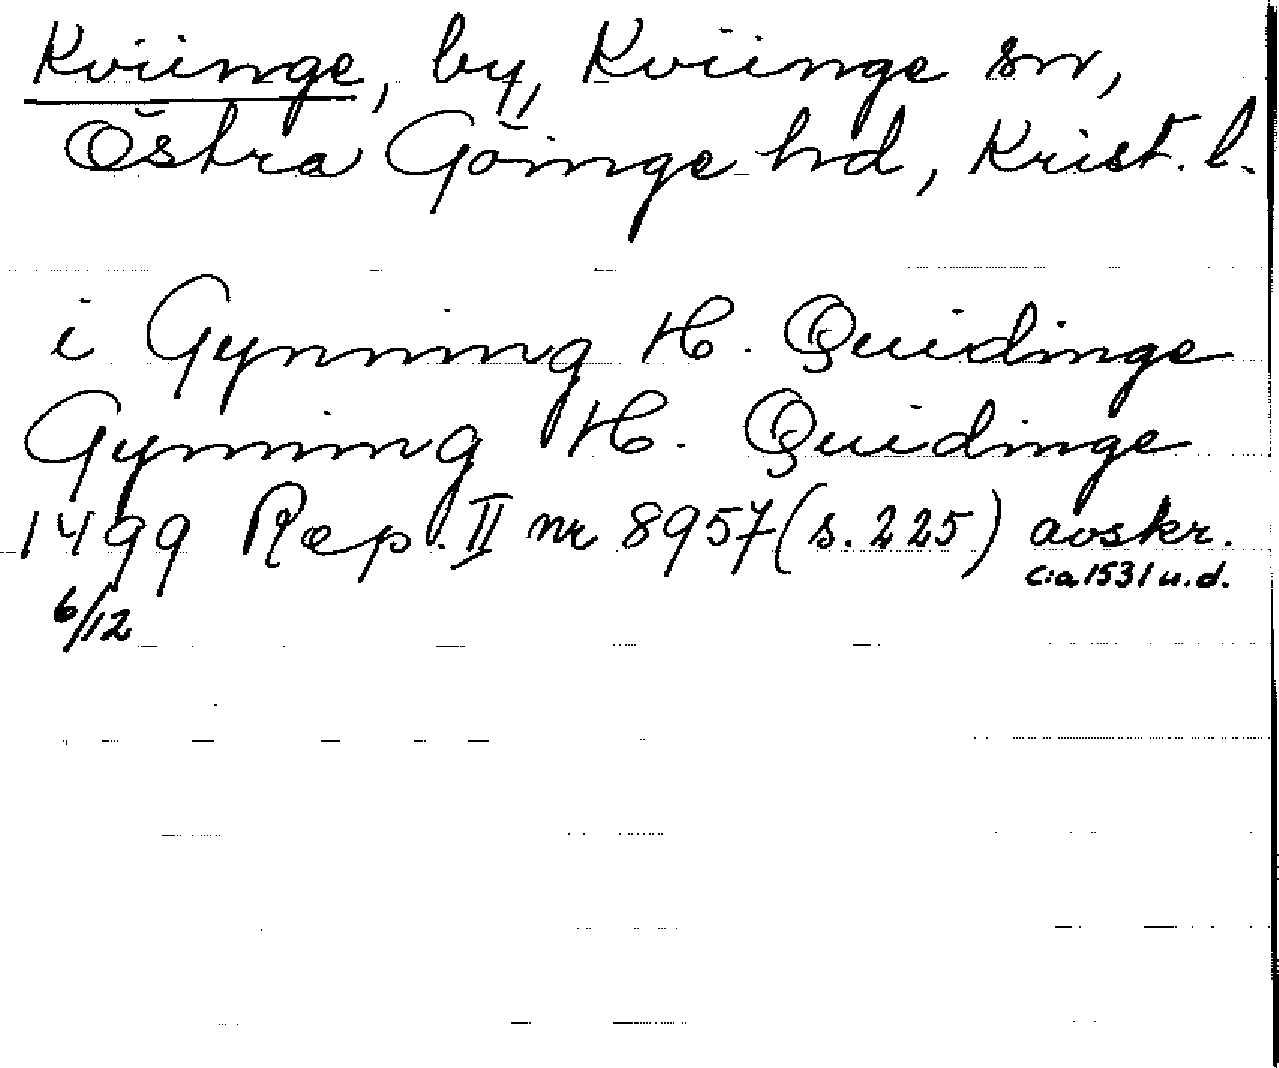 Kviinge, by, Kviinge sn,
Östra Göinge hd, Krist. l.
i Gynning H. Quidinge
Gynning H. Quidinge
1499 Rep. II nr 8957 (s. 225) avskr.
c:a 1531 u.d.
6/12